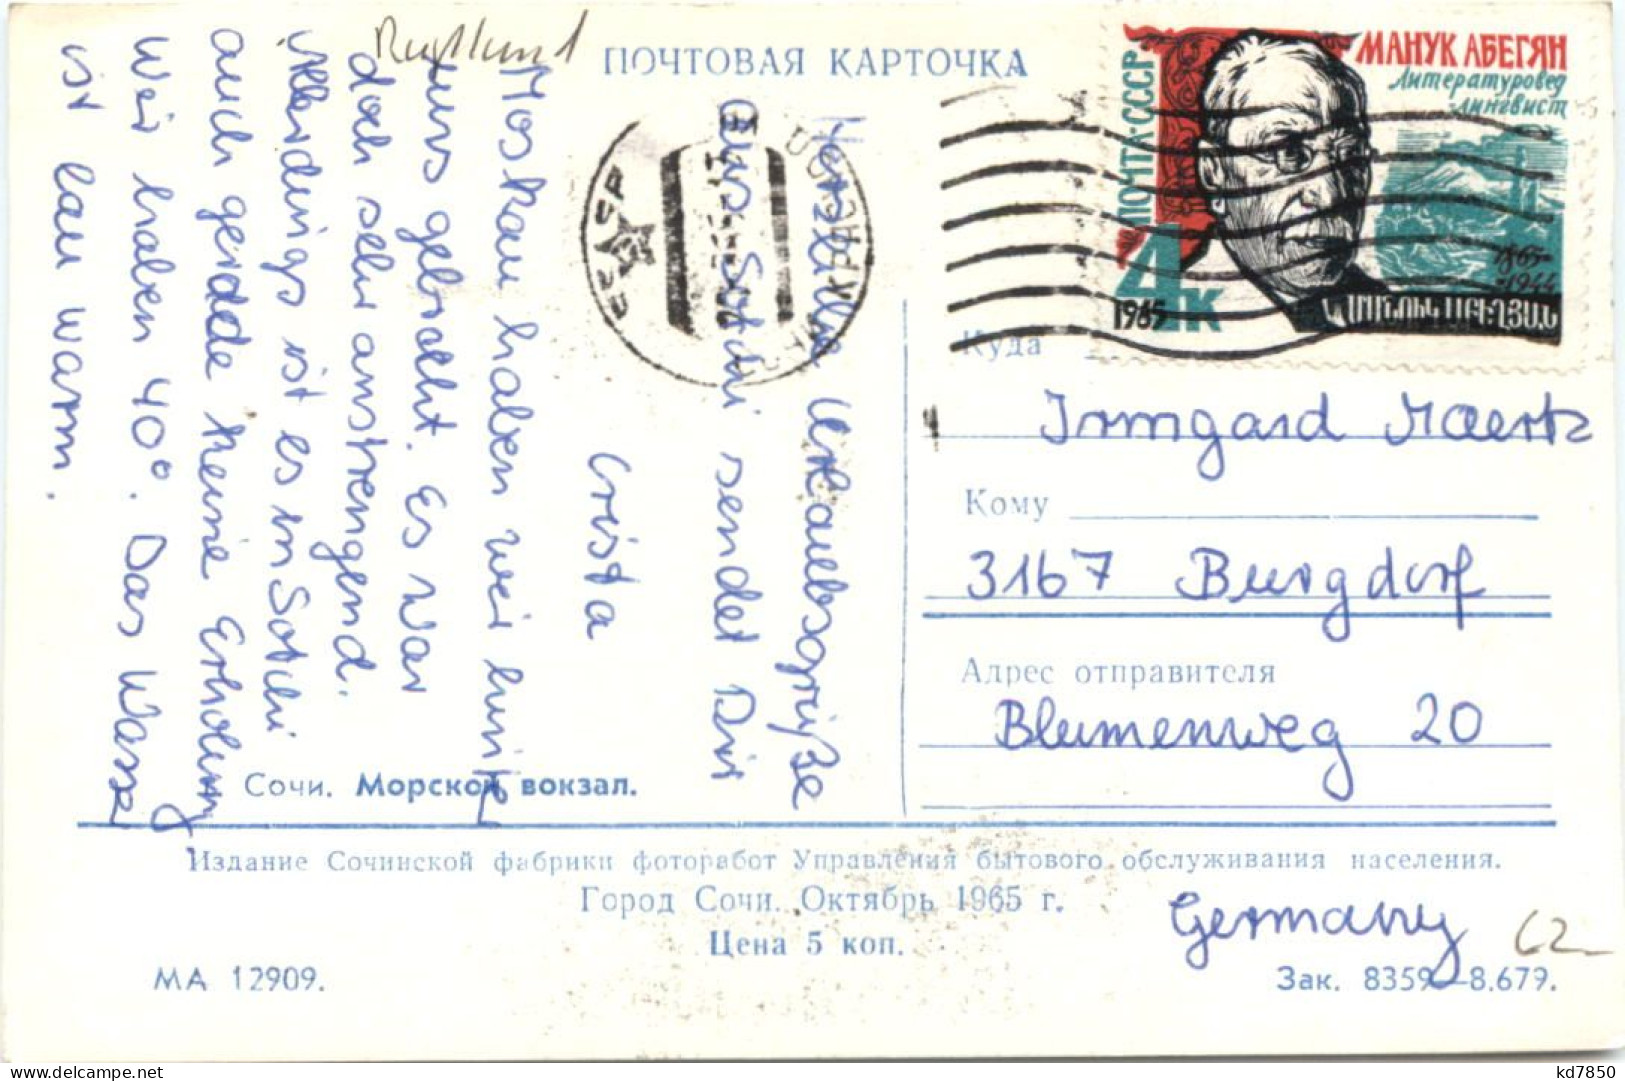 Rußland
ПОЧТОВАЯ КАРТОЧКА
МАНУК АБЕГЯН
Литературовед
лингвист
ПОЧТА·СССР
1865-
-1944
4к
1965
ՄԱՆՈՒԿ ԱԲԵՂՅԱՆ
СССР
Herzliche Urlaubsgrüße
aus Sotchi sendet Dir
Crista
Moskau haben wir hinter
uns gebracht. Es war
doch sehr anstrengend.
Allerdings ist es in Sotchi
auch gerade keine Erholung,
Wir haben 40°. Das Wasser
ist lau warm.
Куда
Irmgard Maertz
Кому
3167 Burgdorf
Адрес отправителя
Blumenweg 20
Germany
62
Сочи. Морской вокзал.
Издание Сочинской фабрики фоторабот Управления бытового обслуживания населения.
Город Сочи. Октябрь 1965 г.
Цена 5 коп.
МА 12909.
Зак. 8359—8.679.
kd7850